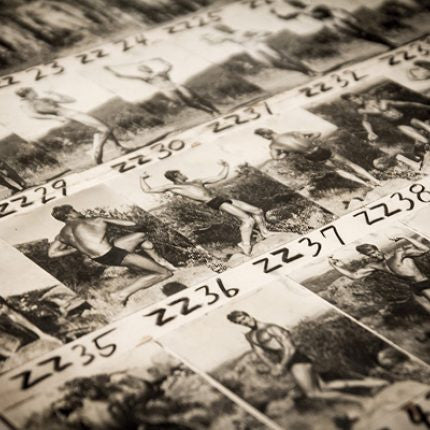 2223 2224 2225
2229 2230 2231 2232
2235 2236 2237 2238